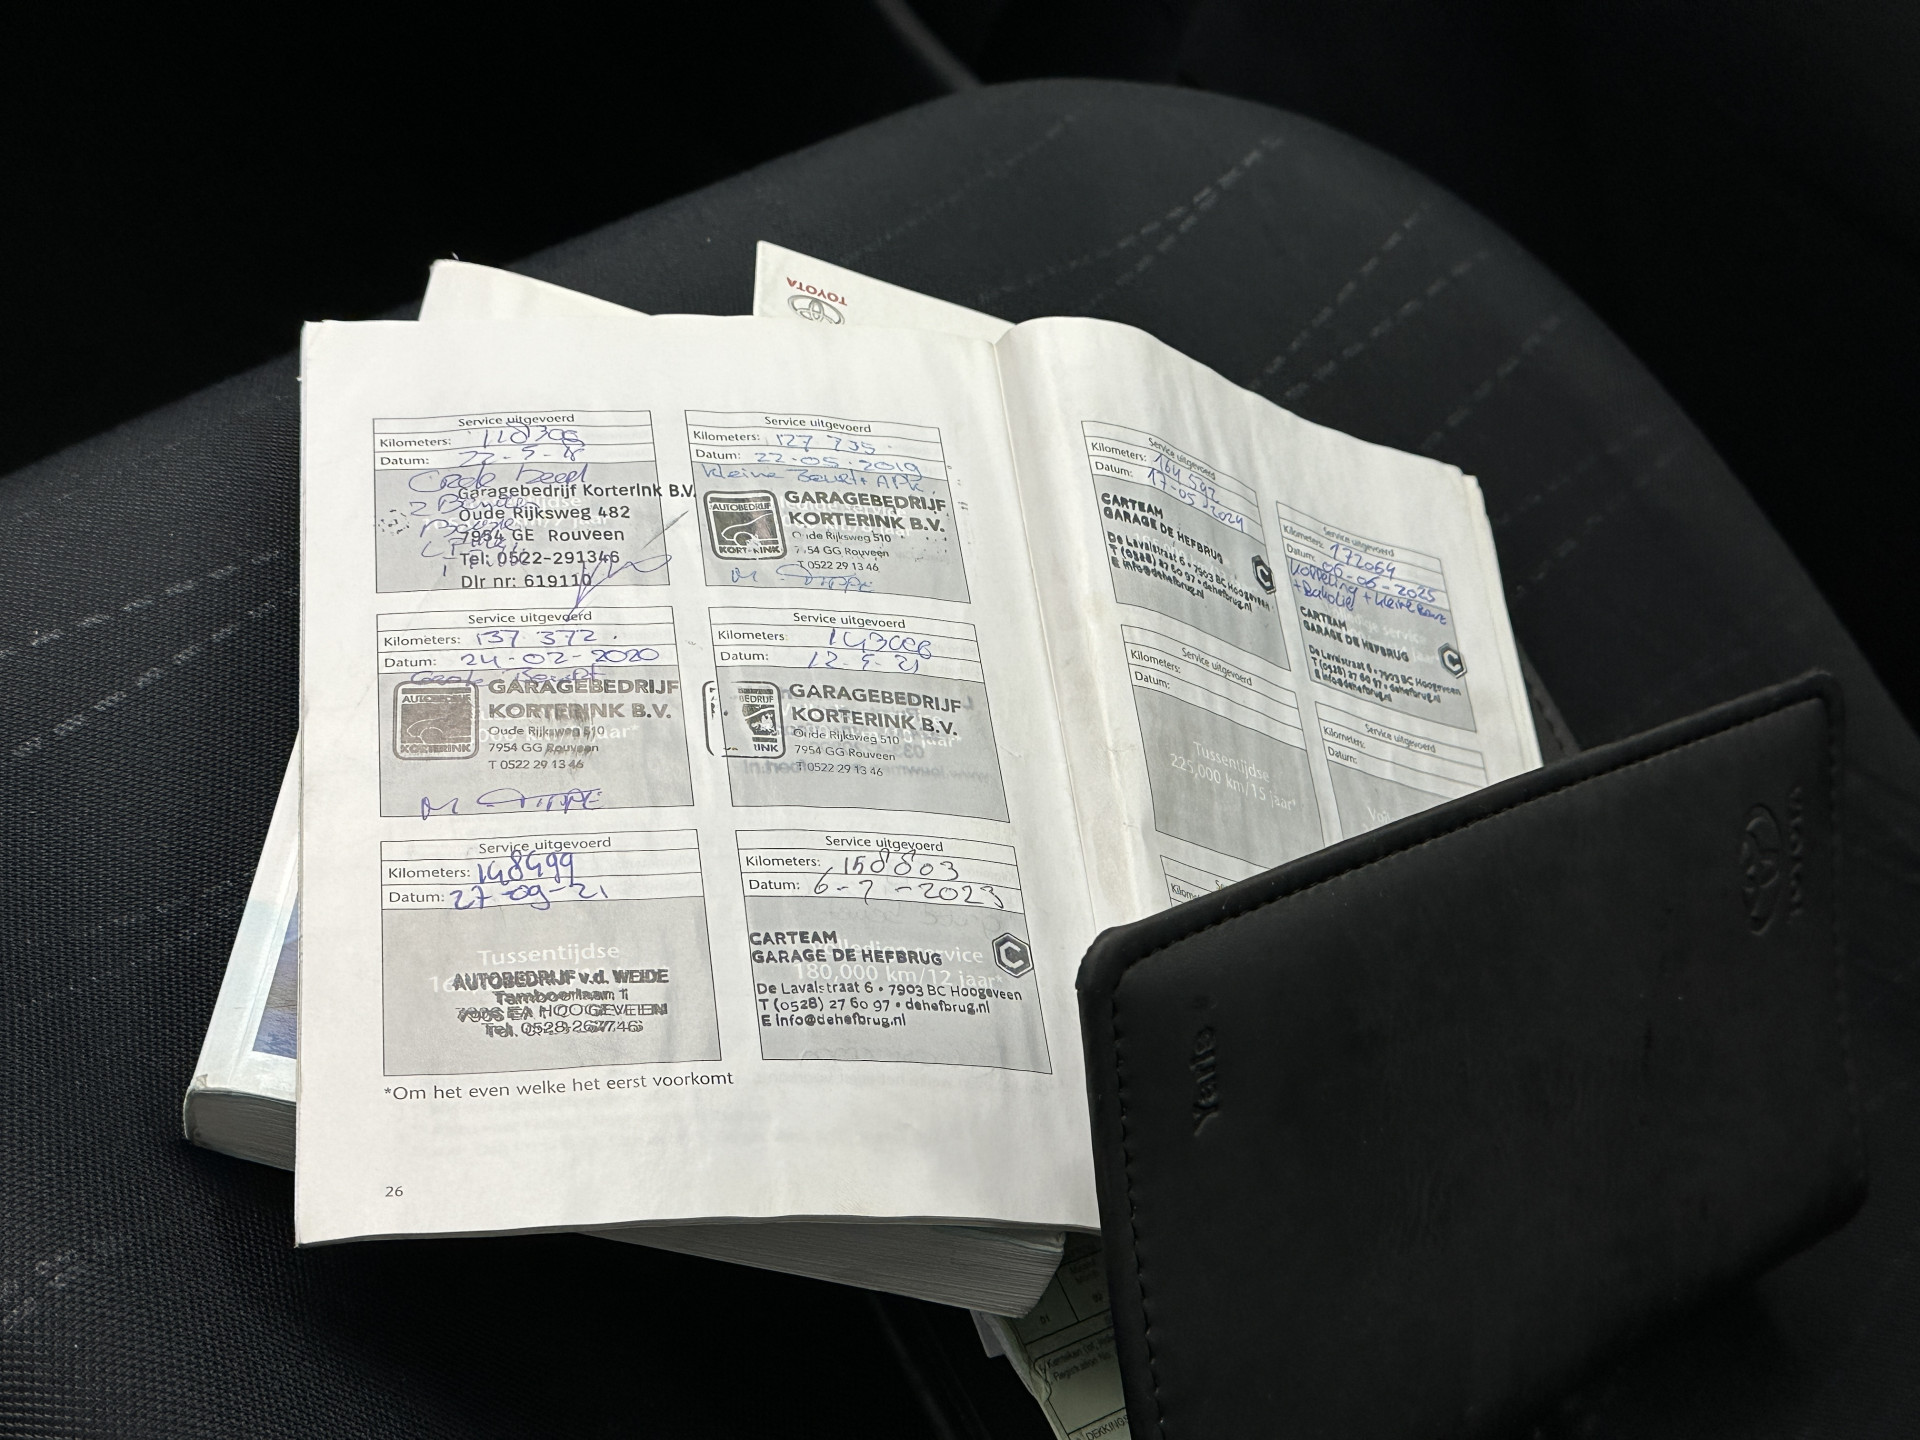 TOYOTA
Service uitgevoerd
Kilometers: 118306
Datum: 22-5-18
Garagebedrijf Korterink B.V.
Oude Rijksweg 482
7954 GE Rouveen
Tel. 0522-291346
Dlr nr: 619110
Service uitgevoerd
Kilometers: 127 735.
Datum: 22-05-2019
Kleine Beurt + APK
AUTOBEDRIJF
KORTERINK
GARAGEBEDRIJF
KORTERINK B.V.
Oude Rijksweg 510
7954 GG Rouveen
T 0522 29 13 46
Service uitgevoerd
Kilometers: 137 372.
Datum: 24-02-2020
Grote Beurt
KORTERINK
GARAGEBEDRIJF
KORTERINK B.V.
Oude Rijksweg 510
7954 GG Rouveen
T 0522 29 13 46
Service uitgevoerd
Kilometers: 143008
Datum: 12-5-21
BEDRIJF
INK
GARAGEBEDRIJF
KORTERINK B.V.
Oude Rijksweg 510
7954 GG Rouveen
T 0522 29 13 46
Service uitgevoerd
Kilometers: 148499
Datum: 27-09-21
Tussentijdse
AUTOBEDRIJF v.d. WEIDE
Tamboerlaan 1
7906 EA HOOGEVEEN
Tel. 0528-267746
Service uitgevoerd
Kilometers: 158803
Datum: 6-7-2023
Volledige service
180,000 km/12 jaar*
CARTEAM
GARAGE DE HEFBRUG
De Lavalstraat 6 • 7903 BC Hoogeveen
T (0528) 27 60 97 • dehefbrug.nl
E info@dehefbrug.nl
*Om het even welke het eerst voorkomt
26
Service uitgevoerd
Kilometers: 164 592
Datum: 17-05-2024
CARTEAM
GARAGE DE HEFBRUG
De Lavalstraat 6 • 7903 BC Hoogeveen
T (0528) 27 60 97 • dehefbrug.nl
E info@dehefbrug.nl
Service uitgevoerd
Kilometers: 172064
Datum: 06-06-2025
Koppeling + kleine beurt
+ Bakolie
CARTEAM
GARAGE DE HEFBRUG
De Lavalstraat 6 • 7903 BC Hoogeveen
T (0528) 27 60 97 • dehefbrug.nl
E info@dehefbrug.nl
Service uitgevoerd
Kilometers:
Datum:
Tussentijdse
225,000 km/15 jaar*
Service uitgevoerd
Kilometers:
Datum:
TOYOTA
Yaris